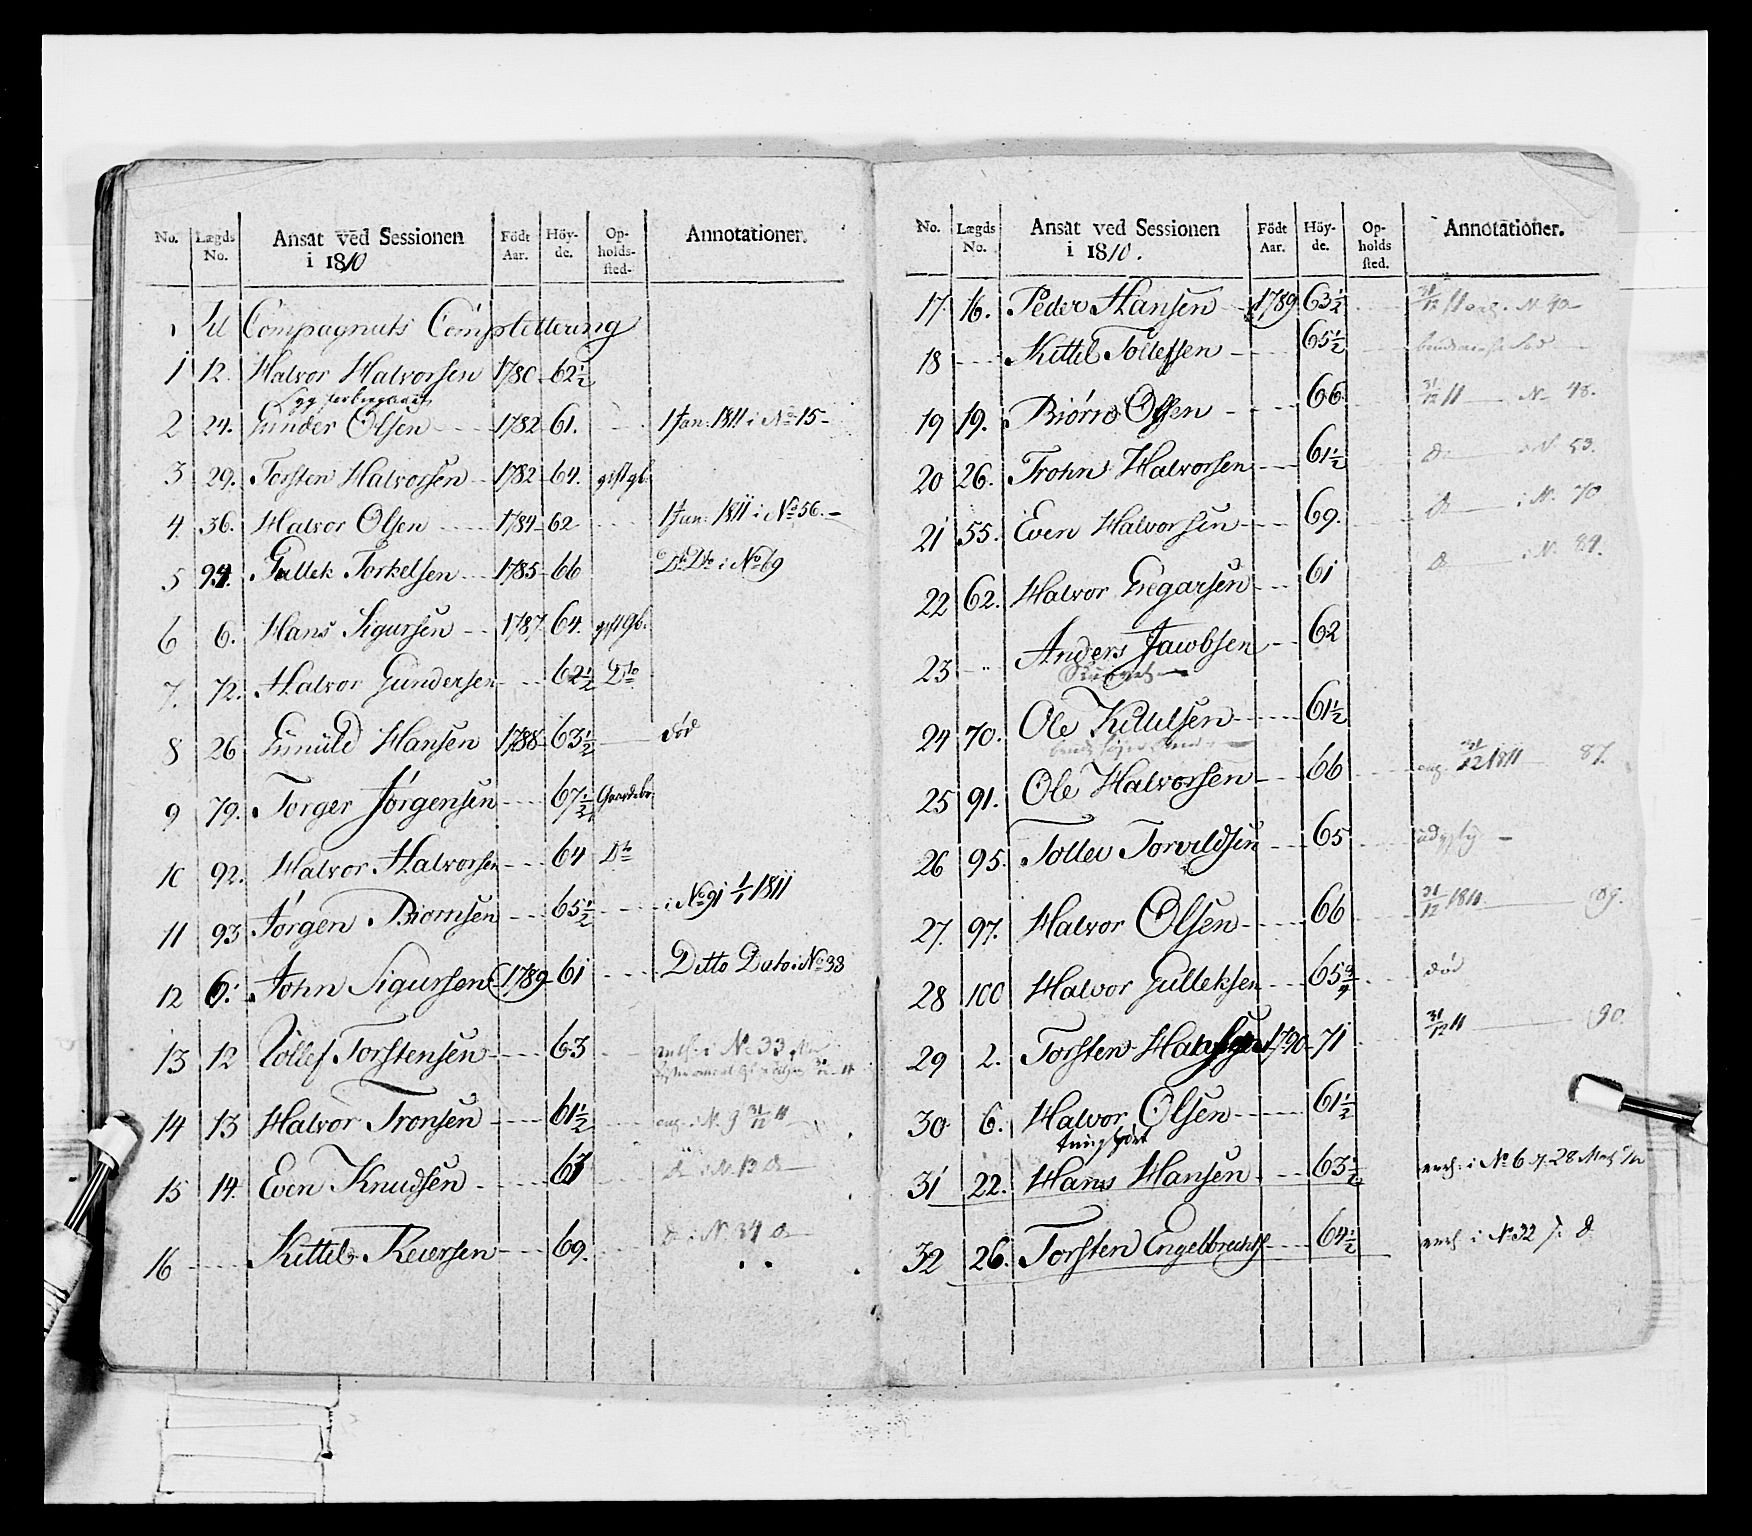 No. Lægds No. Ansat ved Sessionen i 1810 Födt Aar. Höy-de. Op-holds-sted. Annotationer.
Til Compagniets Complettering
1 12. Halvor Halvorsen 1780 62½
2 24. Gunder Olsen 1782 61. 1 Jan: 1811 i No 15
3 29. Torsten Halvorsen 1782 64. gift gb.
4. 36. Halvor Olsen 1784 62 1 Jan: 1811 i No 56.
5 94. Gullek Torkelsen 1785 66 Do Do i No 69
6 6. Hans Sigursen 1787 64. gift gb.
7. 72. Halvor Gundersen 62½ Do
8 26 Hansen 1788 63½ død
9 79. Torger Jörgensen 67½ Gaardbr
10 92. Halvor Halvorsen 64 Do
11 93 Jörgen Biornsen 65½ i No 91 1/1 1811
12 6. John Sigursen 1789 61 Ditto Dato i No 38
13 12 Tollef Torstensen 63 i No 33
14 13 Halvor Tronsen 61½ i N. 9 31/12 11
15 14. Even Knudsen 63 D i N. 13 D
16 Kittil Reiersen 69. D i N. 34 D
No. Lægds No. Ansat ved Sessionen i 1810. Födt Aar. Höy-de. Op-holds sted. Annotationer.
17. 16. Peder Hansen 1789 63½ 31/12 11 N 40
18 Kittil Tollefsen 65½
19 19. Biørn Olsen 66 31/12 11 N. 48.
20 26. Trohn Halvorsen 61½ D N 53.
21 55. Even Halvorsen 69. D i N. 70
22 62. Halvor Gregarsen 61 D i N. 84.
23 Anders Jacobsen 62
24 70. Ole Kittilsen 61½
25 91. Ole Halvorsen 66 31/12 1811 87.
26 95. Tollev Torvildsen 65
27. 97. Halvor Olsen 66 31/12 1811 89.
28 100 Halvor Gulleksen 65¾ død
29 2. Torsten 1790 71 31/12 11 90
30 6. Halvor Olsen 61½
31 22. Hans Hansen 63½ i No 6 28
32 26. Torsten Engelbrechts 64½ i No 32